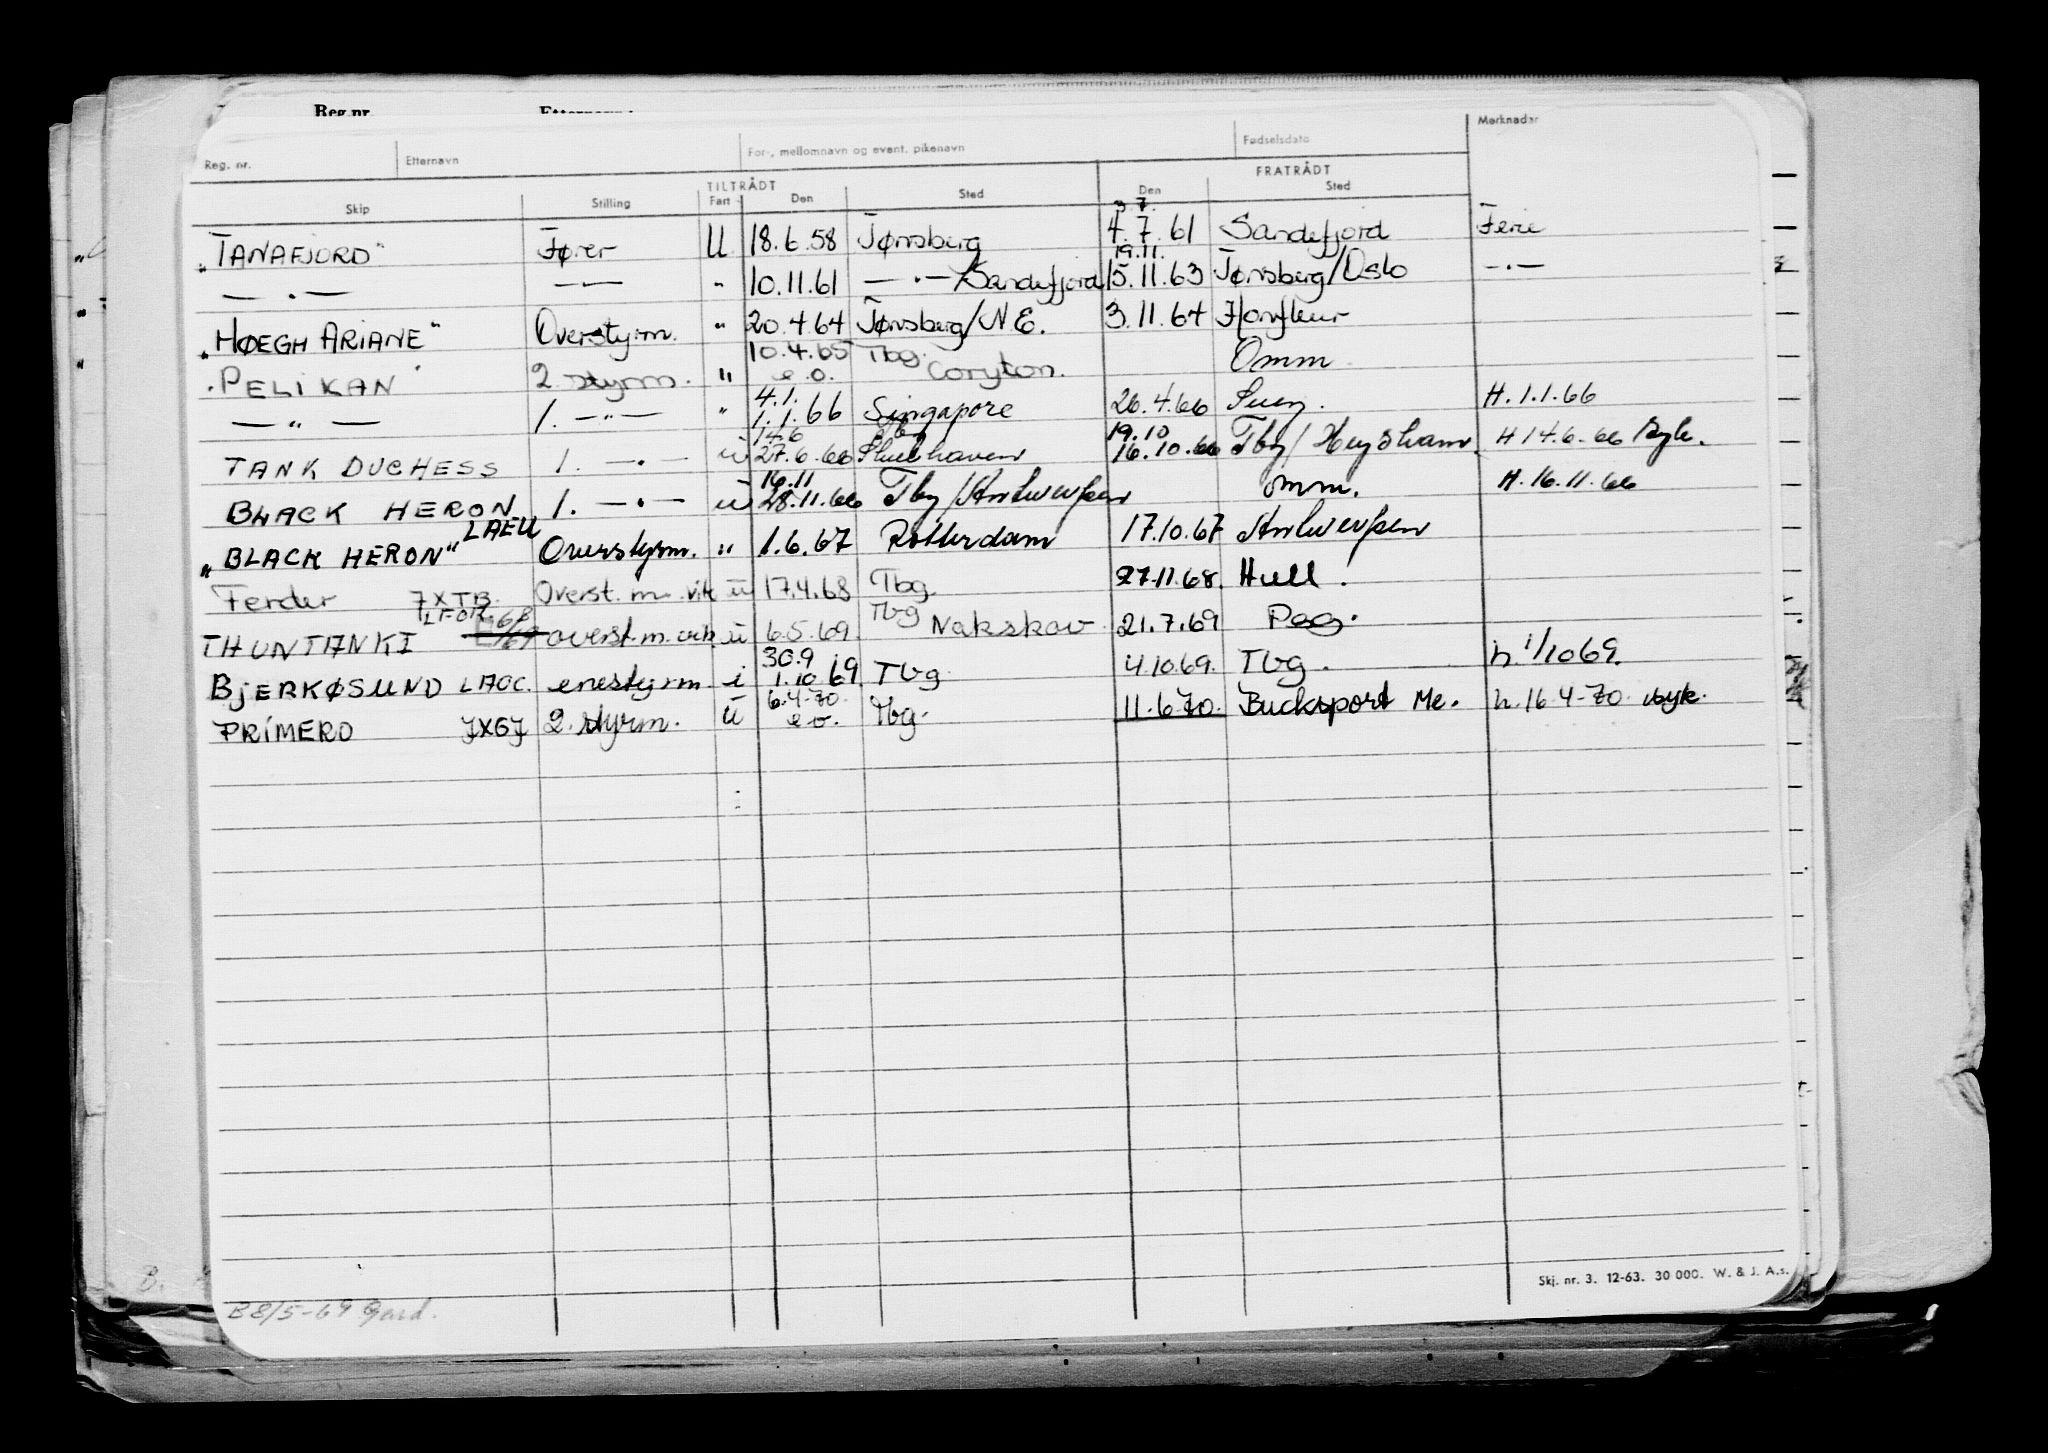 Reg.nr.
Reg. nr. Etternavn For-, mellomnavn og event. pikenavn Fødselsdato Merknader
TILTRÅDT FRATRÅDT
Skip Stilling Fart Den Sted Den Sted
3.7.
„TANAFJORD" Fører U 18.6.58 Tønsberg 4.7.61 Sandefjord Ferie
19.11.
— . — — " — " 10.11.61 — . — Sandefjord 15.11.63 Tønsberg/Oslo — . —
„HØEGH ARIANE" Overstyrm. " 20.4.64 Tønsberg/N.E. 3.11.64 Honfleur
10.4.65 Tbg.
"PELIKAN" 2. styrm. " e.o. Coryton. Omm
4.1.
— " — 1. — " — " 1.1.66 Singapore 26.4.66 Suez. H. 1.1.66
14.6 19.10
TANK DUCHESS 1. — . — u 27.6.66 Shellhaven 16.10.66 Tbg/Heysham. H 14.6.66
16.11
BLACK HERON 1. — . — u 28.11.66 Tbg/Antwerpen omm. H. 16.11.66
„BLACK HERON" LAEU Overstyrm. " 1.6.67 Rotterdam 17.10.67 Antwerpen
Ferder JXTB. Overst. m. vik u 17.4.68 Tbg. 27.11.68. Hull.
THUNTANKI LFOR overst. m. vik u 6.5.69. Tbg Nakskov 21.7.69 Pag.
30.9
BJERKØSUND LAOC. enestyrm i 1.10.69 Tbg 4.10.69. Tbg. h. 1/10 69.
6.4-70.
PRIMERO JXGJ 2. styrm. u e.o. Tbg. 11.6.70. Bucksport Me. h. 16.4-70. syk.
Skj. nr. 3. 12-63. 30 000. W. & J. A.s.
B 8/5-69 Gard.